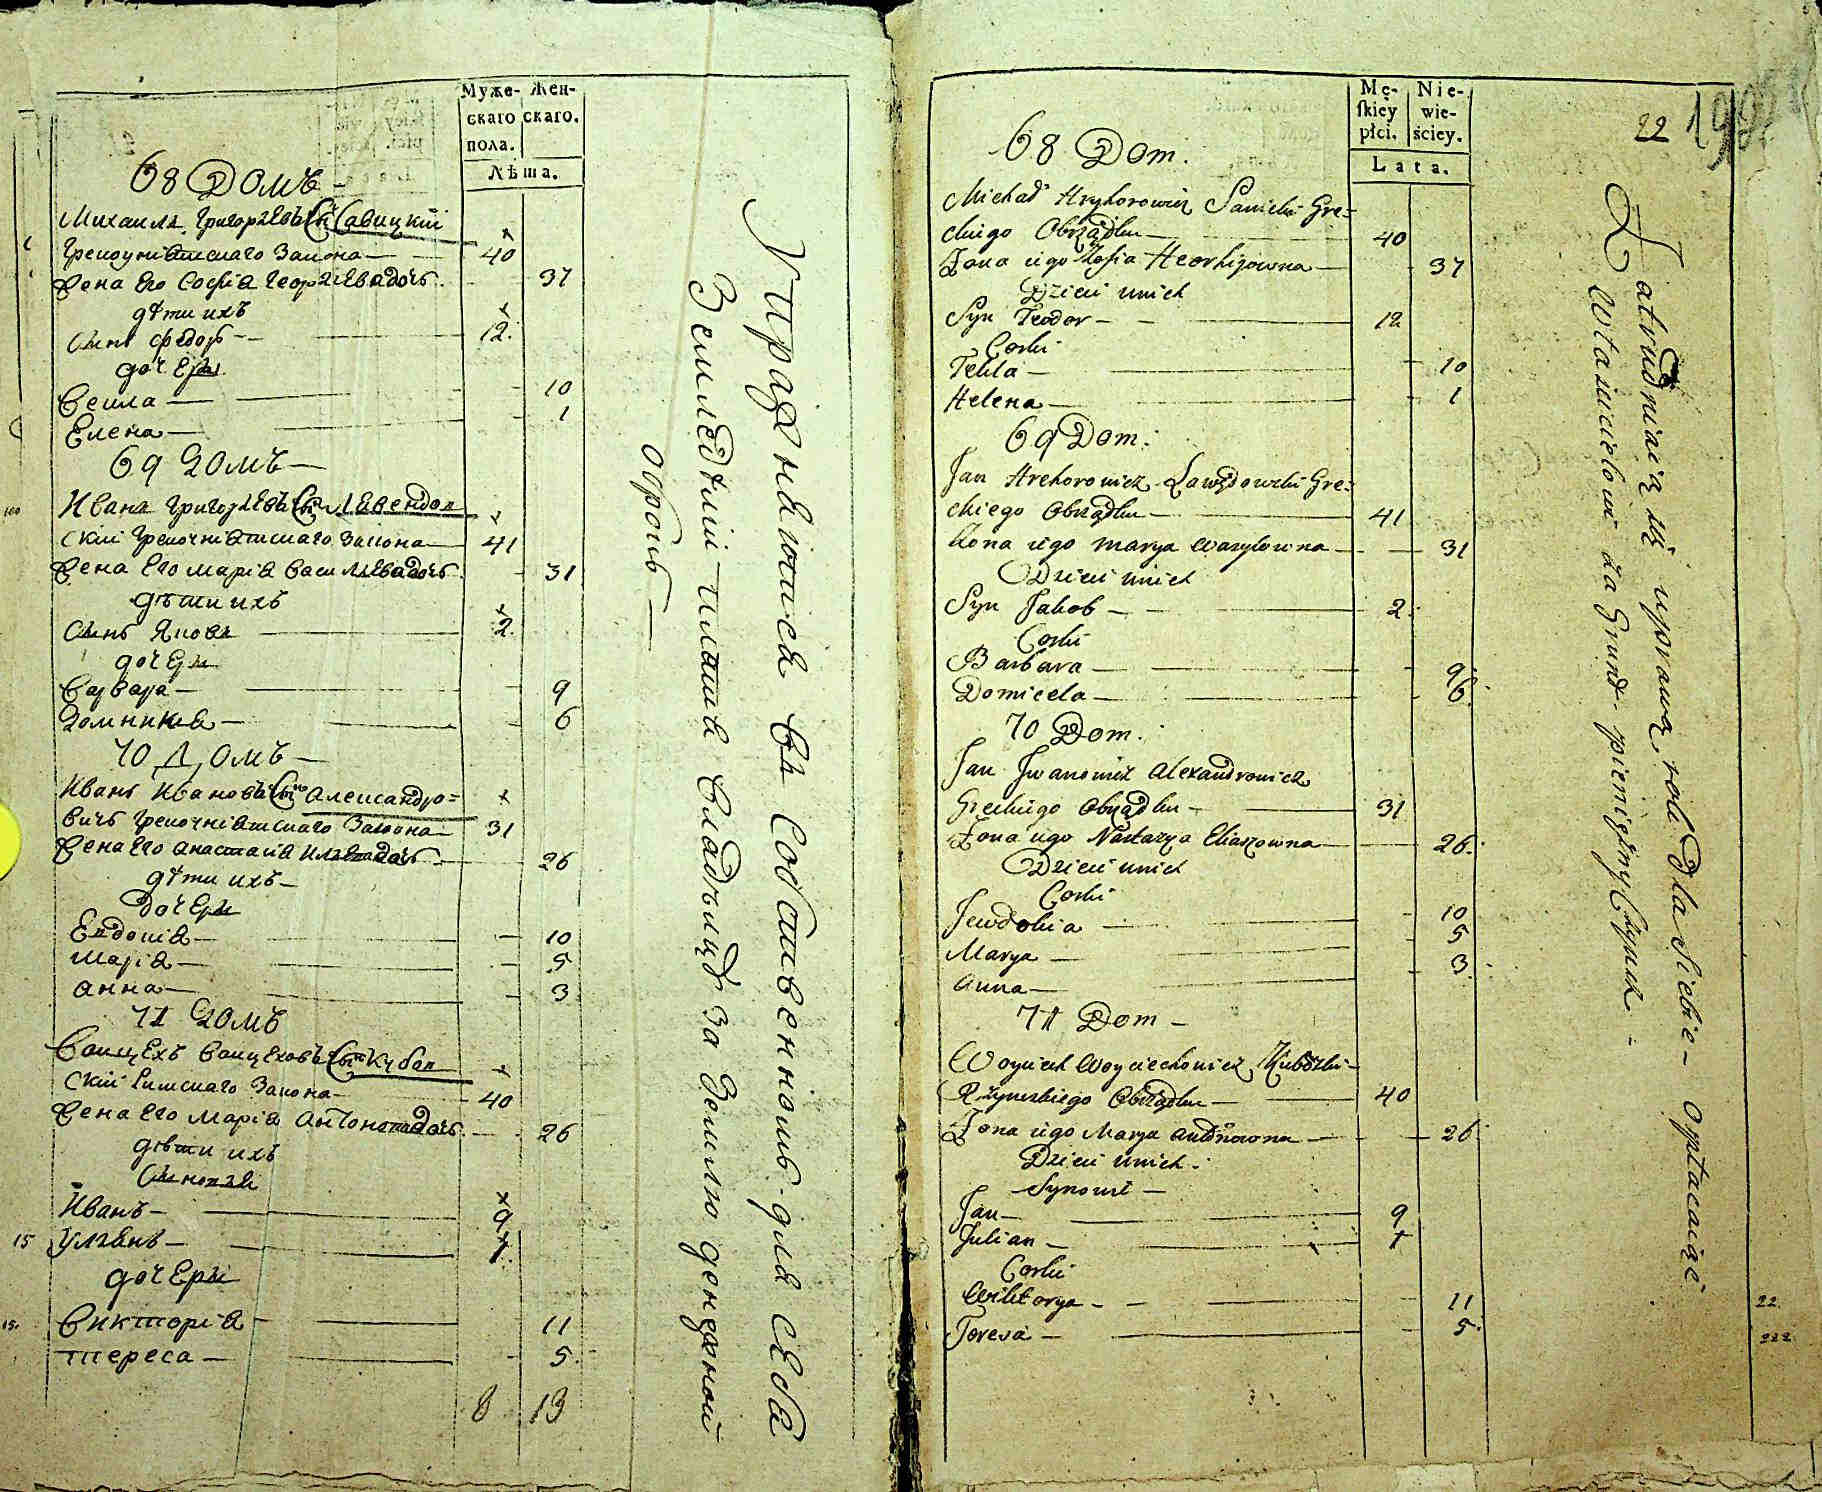 Муже- Жен-
скаго скаго.
пола.
Лѣта.
68 Домъ
Михаилъ Григорьевъ Сынъ Савицкій
Грекоуніатскаго Закона 40
Жена Его Софиа Георгіева дочь 37
дѣти ихъ
Сынъ Федоръ 12
дочери
Векла 10
Елена 1
69 Домъ
Иванъ Григорьевъ Сынъ Лавендов
скій Грекоуніатскаго Закона 41
Жена Его Маріа Васильева дочь 31
дѣти ихъ
Сынъ Яковъ 2
дочери
Варвара 9
Домникиа 6
70 Домъ
Иванъ Ивановъ Сынъ Александро=
вичъ Грекоуніатскаго Закона 31
Жена Его Анастасіа Ильева дочь 26
дѣти ихъ
Дочери
Евдокіа 10
Маріа 5
Анна 3
71 Домъ
Войцехъ Войцеховъ Сынъ Кубал
скій Римскаго Закона 40
Жена Его Маріа Антонова дочь 26
дѣти ихъ
Сыновьи
Иванъ 9
15 Ульанъ 1
дочери
15. Викторіа 11
Тереса 5
8 13
Упражняются въ Собственномъ для себя
Земледѣліи платя Владѣльцу за Землю денежной
оброкъ
Mę- Nie-
skiey wie-
płci. ściey.
Lata.
22
68 Dom.
Michał Hryhorowicz Sawicki Gre=
ckiego Obrządku 40
Żona iego Zofia Heorhijowna 37
Dzieci ich
Syn Teodor 12
Corki
Tekla 10
Helena 1
69 Dom.
Jan Hrehorowicz Lawędowski Gre=
ckiego Obrządku 41
Żona iego Marya Wasylowna 31
Dzieci ich
Syn Jakob 2
Corki
Barbara 9
Domicela 6
70 Dom.
Jan Jwanowicz Alexandrowicz
Greckiego Obrządku 31
Żona iego Nastazya Eliaszowna 26
Dzieci ich
Corki
Jewdokia 10
Marya 5
Anna 3
71 Dom
Woyciech Woyciechowicz Kubalski
Rzymskiego Obrządku 40
Żona iego Marya Antonowna 26
Dzieci ich
Synowie
Jan 9
Julian 1
Corki
Wiktorya 11
Teresa 5
Zatrudniaią się uprawą roli dla siebie opłacaiąc
Właścicielowi za Grunt pieniężny Czynsz
22